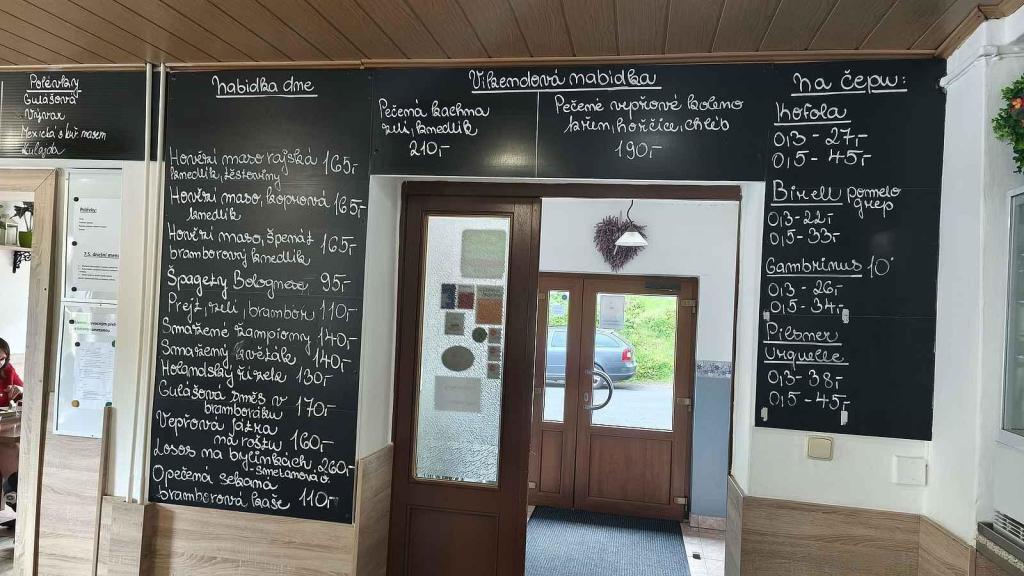 Polévky
Gulášová
Vývar
Mexická s kuř. masem
Kulajda
Polévky:
Nabídka dne
Hovězí maso rajská 165,-
knedlík, těstoviny
Hovězí maso, koprová 165,-
knedlík
Hovězí maso, špenát 165,-
bramborový knedlík
Špagety Bolognese 95,-
Prejt, zelí, brambor 110,-
Smažené žampiony 140,-
Smažený květák 140,-
Holandský řízek 130,-
Gulášová směs v 170,-
bramboráku
Vepřová játra
na roštu 160,-
Losos na bylinkách, 260,-
smetanová o.
Opečená sekaná
bramborová kaše 110,-
Víkendová nabídka
Pečená kachna
zelí, knedlík
210,-
Pečené vepřové koleno
křen, hořčice, chléb
190,-
Na čepu:
Kofola
0,3 - 27,-
0,5 - 45,-
Birell pomelo
grep
0,3 - 22,-
0,5 - 33,-
Gambrinus 10°
0,3 - 26,-
0,5 - 34,-
Pilsner
Urquelle
0,3 - 38,-
0,5 - 45,-